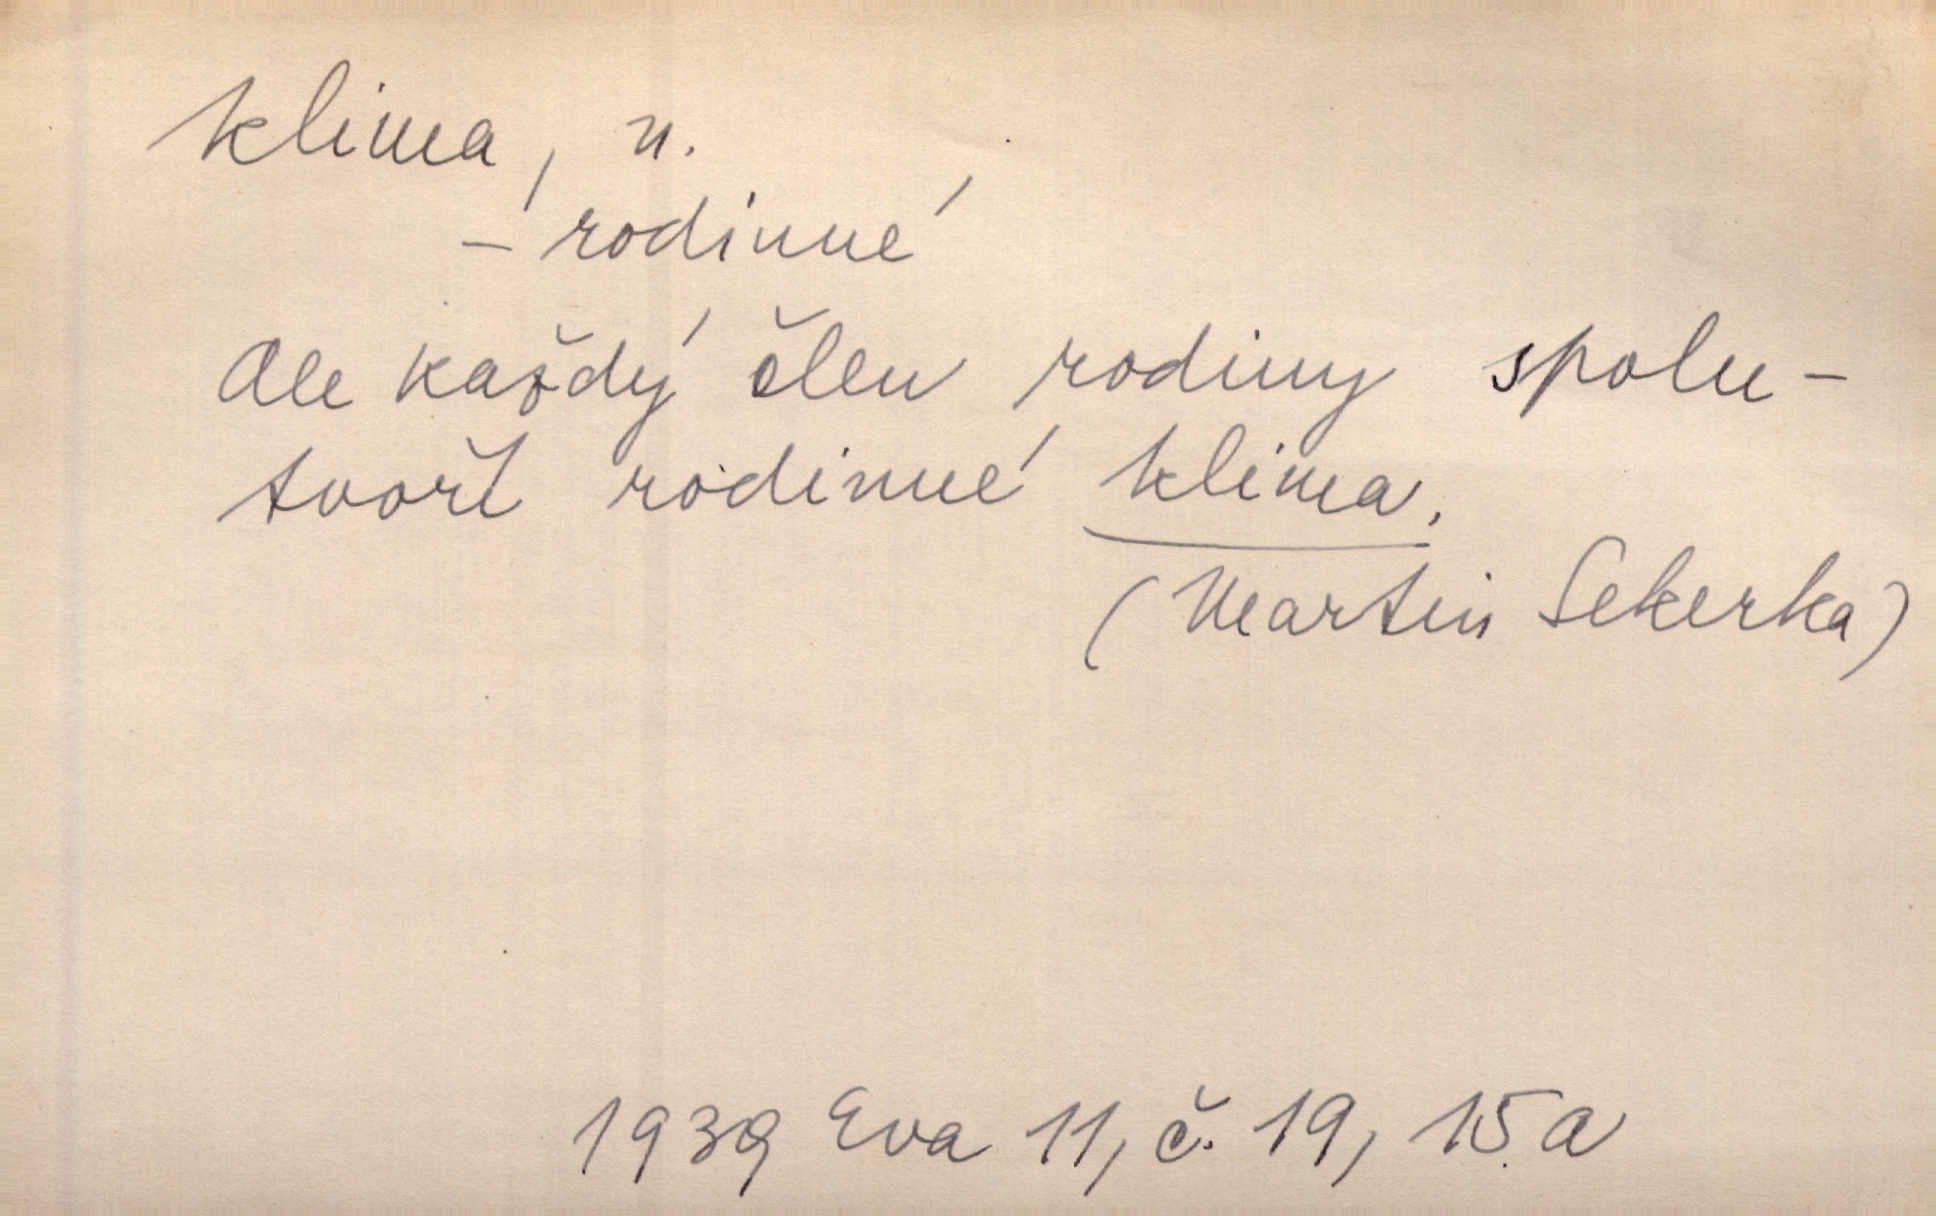 klima, n.
– rodinné
Ale každý člen rodiny spolu-
tvoří rodinné klima.
(Martin Sekerka)
1939 Eva 11, č. 19, 15a